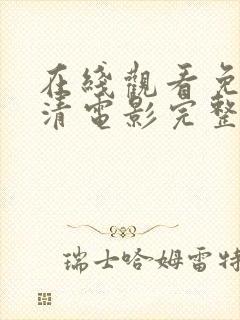 在綫觀看免
清電影完整
瑞士哈姆雷特